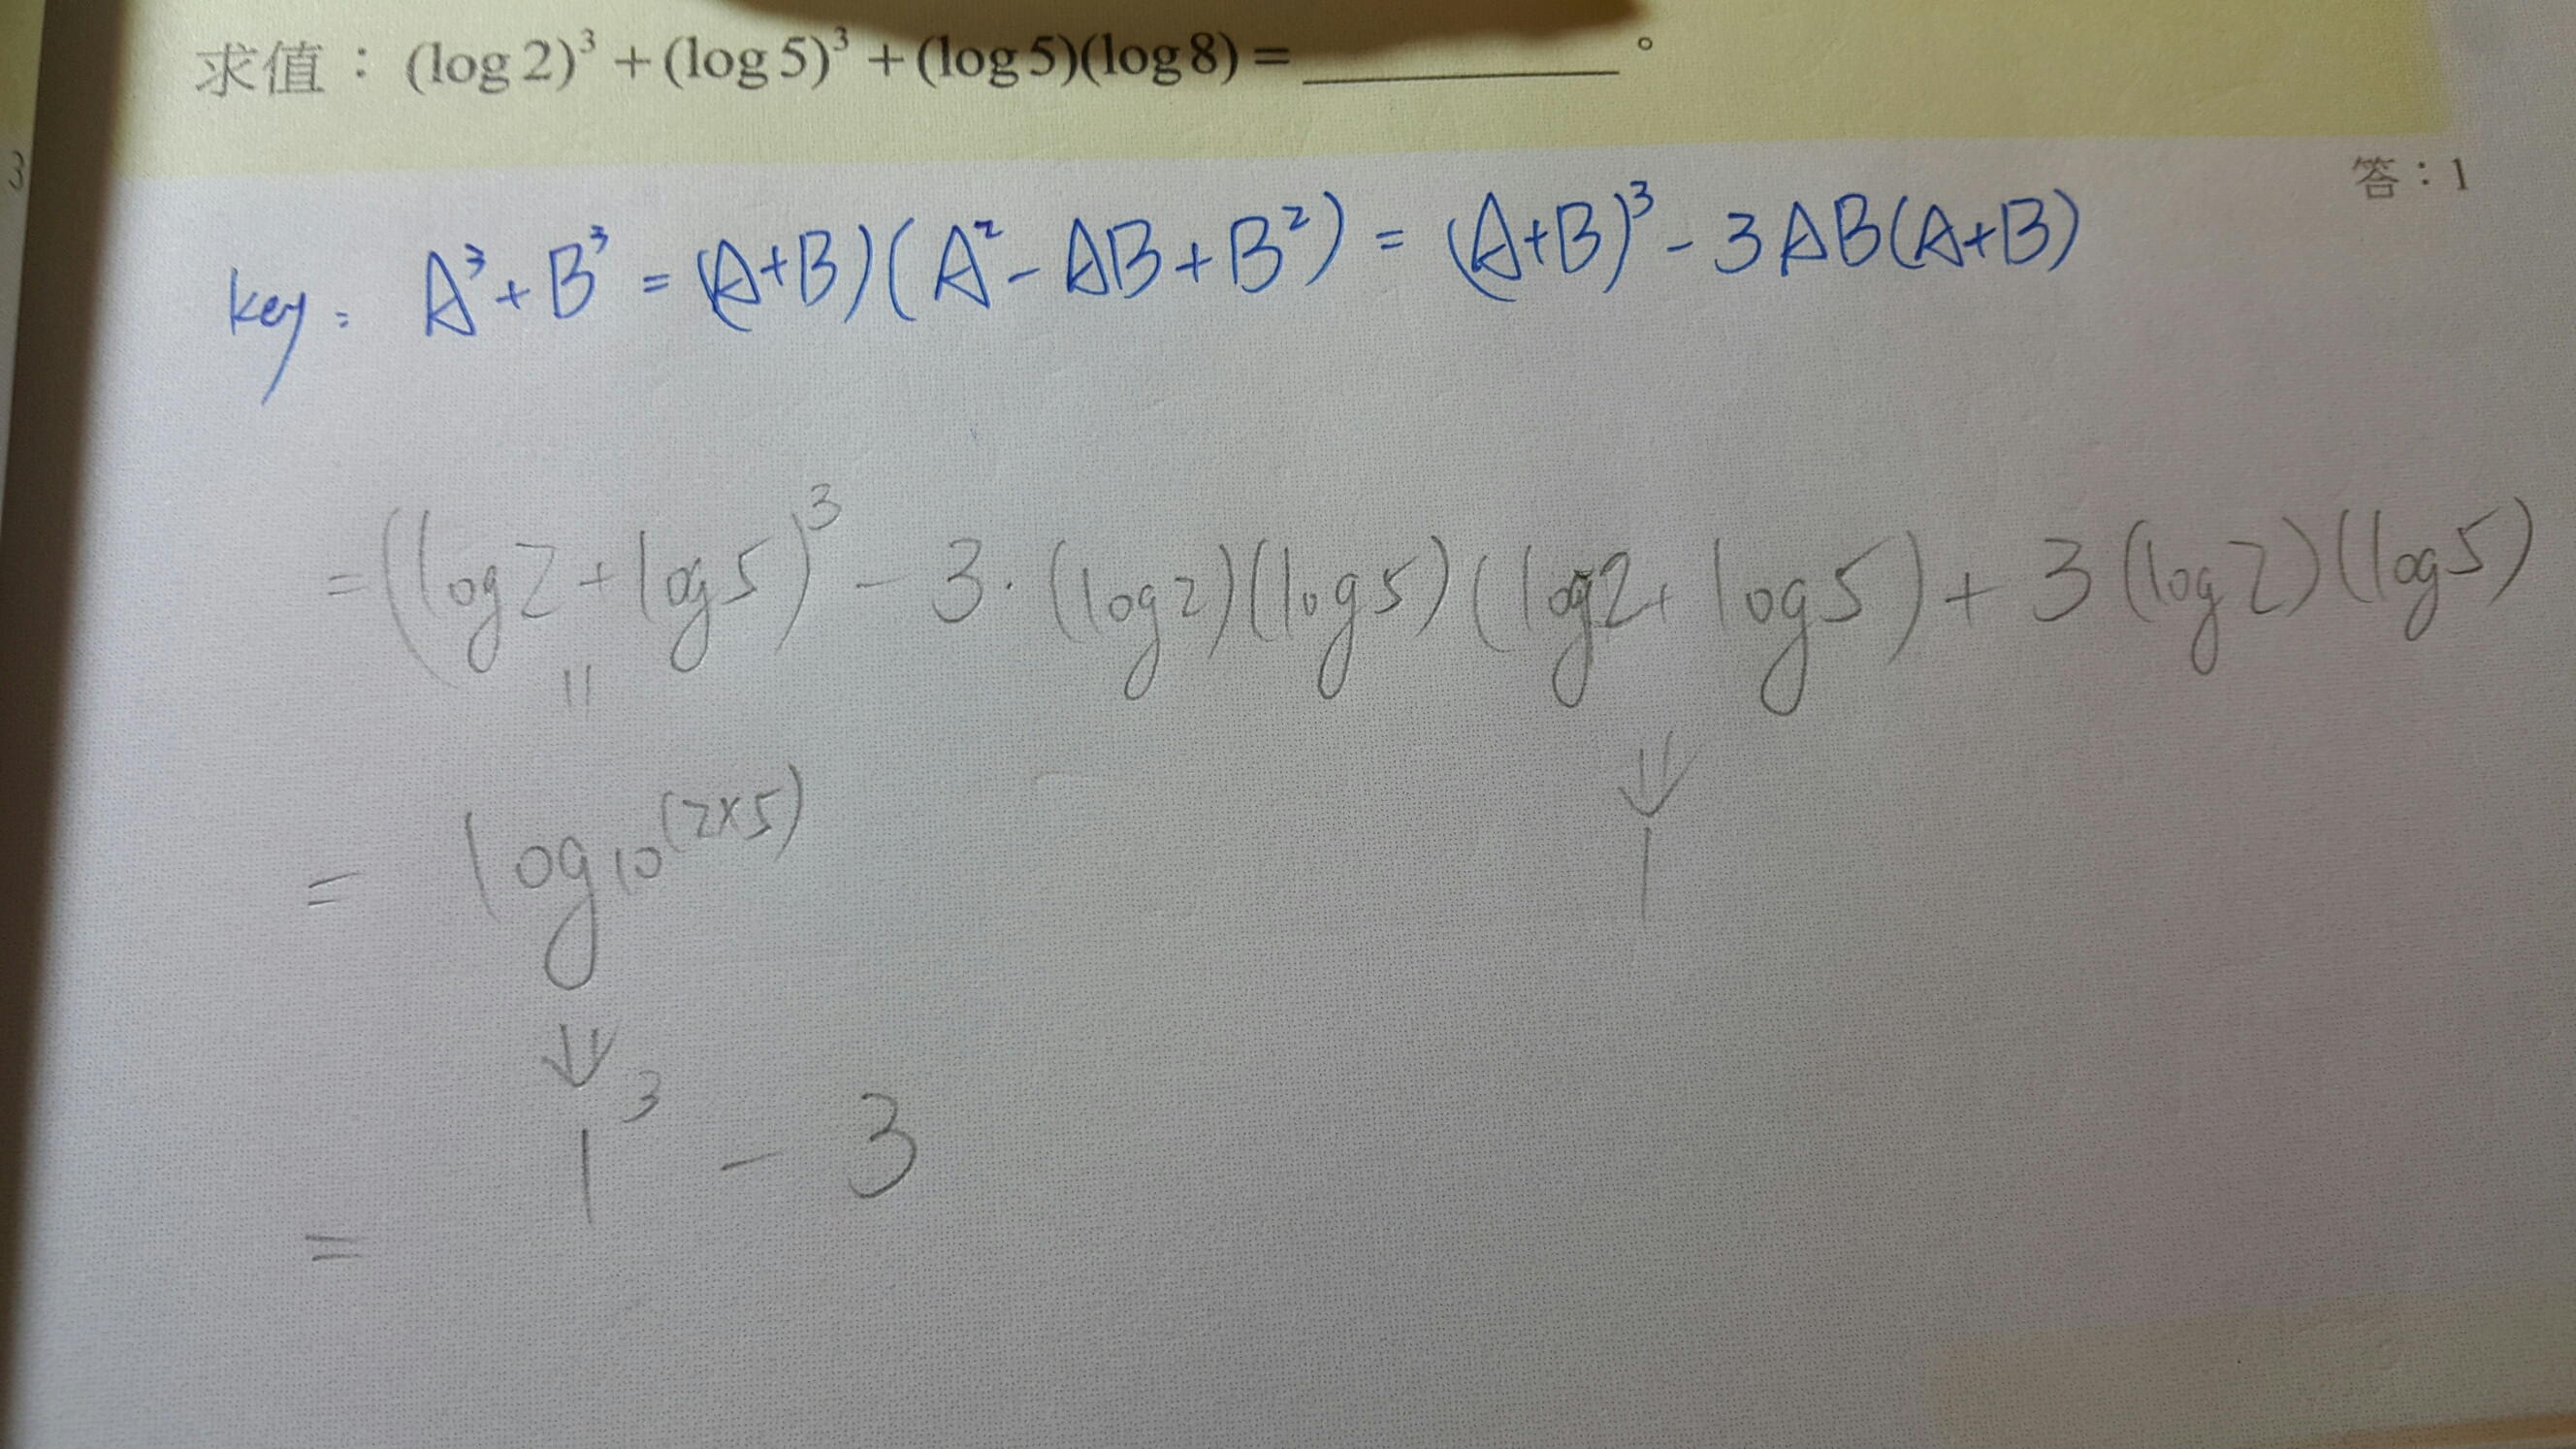 求值：(log 2)³ + (log 5)³ + (log 5)(log 8) = ________。
答：1
key: A³ + B³ = (A+B)(A² - AB + B²) = (A+B)³ - 3AB(A+B)
= (log2 + log5)³ - 3·(log2)(log5)(log2 + log5) + 3(log2)(log5)
||
⇓
= log₁₀(2×5)
1
⇓
1³ - 3
=
3